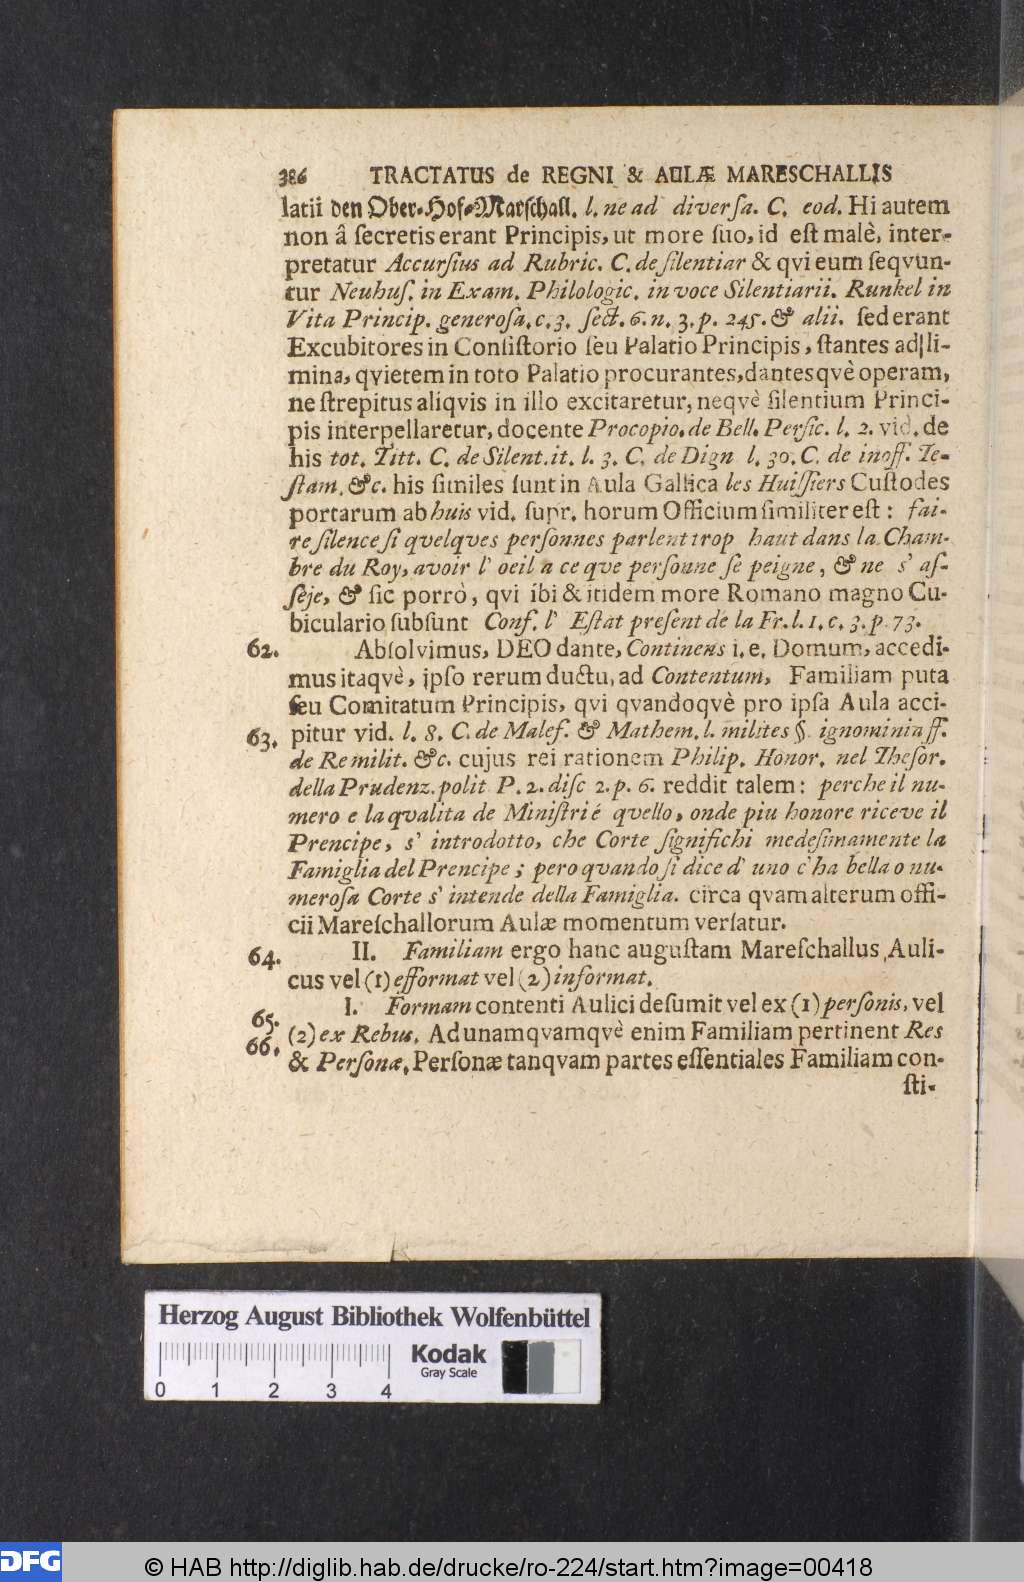 386 TRACTATUS de REGNI & AULÆ MARESCHALLIS
latii den Ober-Hof-Marschall. l. ne ad diversa. C. eod. Hi autem
non â ſecretis erant Principis, ut more ſuo, id eſt malè, inter-
pretatur Accurſius ad Rubric. C. de ſilentiar & qvi eum ſeqvun-
tur Neuhuſ. in Exam. Philologic. in voce Silentiarii. Runkel in
Vita Princip. generoſa. c. 3. ſect. 6. n. 3. p. 245. & alii. ſed erant
Excubitores in Conſiſtorio ſeu Palatio Principis, ſtantes ad li-
mina, qvietem in toto Palatio procurantes, dantesqvè operam,
ne ſtrepitus aliqvis in illo excitaretur, neqvè ſilentium Princi-
pis interpellaretur, docente Procopio. de Bell. Perſic. l. 2. vid. de
his tot. Titt. C. de Silent. it. l. 3. C. de Dign l. 30. C. de inoff. Te-
ſtam. &c. his ſimiles ſunt in Aula Gallica les Huiſſiers Cuſtodes
portarum ab huis vid. ſupr. horum Officium ſimiliter eſt: fai-
re ſilence ſi qvelqves perſonnes parlent trop haut dans la Cham-
bre du Roy, avoir l' oeil a ce qve perſoune ſe peigne, & ne s' aſ-
ſeje, & ſic porrò, qvi ibi & itidem more Romano magno Cu-
biculario ſubſunt Conf. l' Eſtat preſent de la Fr. l. 1. c. 3. p. 73.
62. Abſolvimus, DEO dante, Continens i. e. Domum, accedi-
mus itaqvè, ipſo rerum ductu, ad Contentum, Familiam puta
ſeu Comitatum Principis, qvi qvandoqvè pro ipſa Aula acci-
63. pitur vid. l. 8. C. de Malef. & Mathem. l. milites §. ignominia ff.
de Re milit. &c. cujus rei rationem Philip. Honor. nel Theſor.
della Prudenz. polit P. 2. diſc 2. p. 6. reddit talem: perche il nu-
mero e la qvalita de Miniſtri é qvello, onde piu honore riceve il
Prencipe, s' introdotto, che Corte ſignifichi medeſimamente la
Famiglia del Prencipe; pero qvando ſi dice d' uno c' ha bella o nu-
meroſa Corte s' intende della Famiglia. circa qvam alterum offi-
cii Mareſchallorum Aulæ momentum verſatur.
64. II. Familiam ergo hanc auguſtam Mareſchallus Auli-
cus vel (1) efformat vel (2) informat.
65. I. Formam contenti Aulici deſumit vel ex (1) perſonis, vel
66. (2) ex Rebus. Ad unamqvamqvè enim Familiam pertinent Res
& Perſonæ. Perſonæ tanqvam partes eſſentiales Familiam con-
ſti-
Herzog August Bibliothek Wolfenbüttel
Kodak
Gray Scale
0 1 2 3 4
DFG
© HAB http://diglib.hab.de/drucke/ro-224/start.htm?image=00418